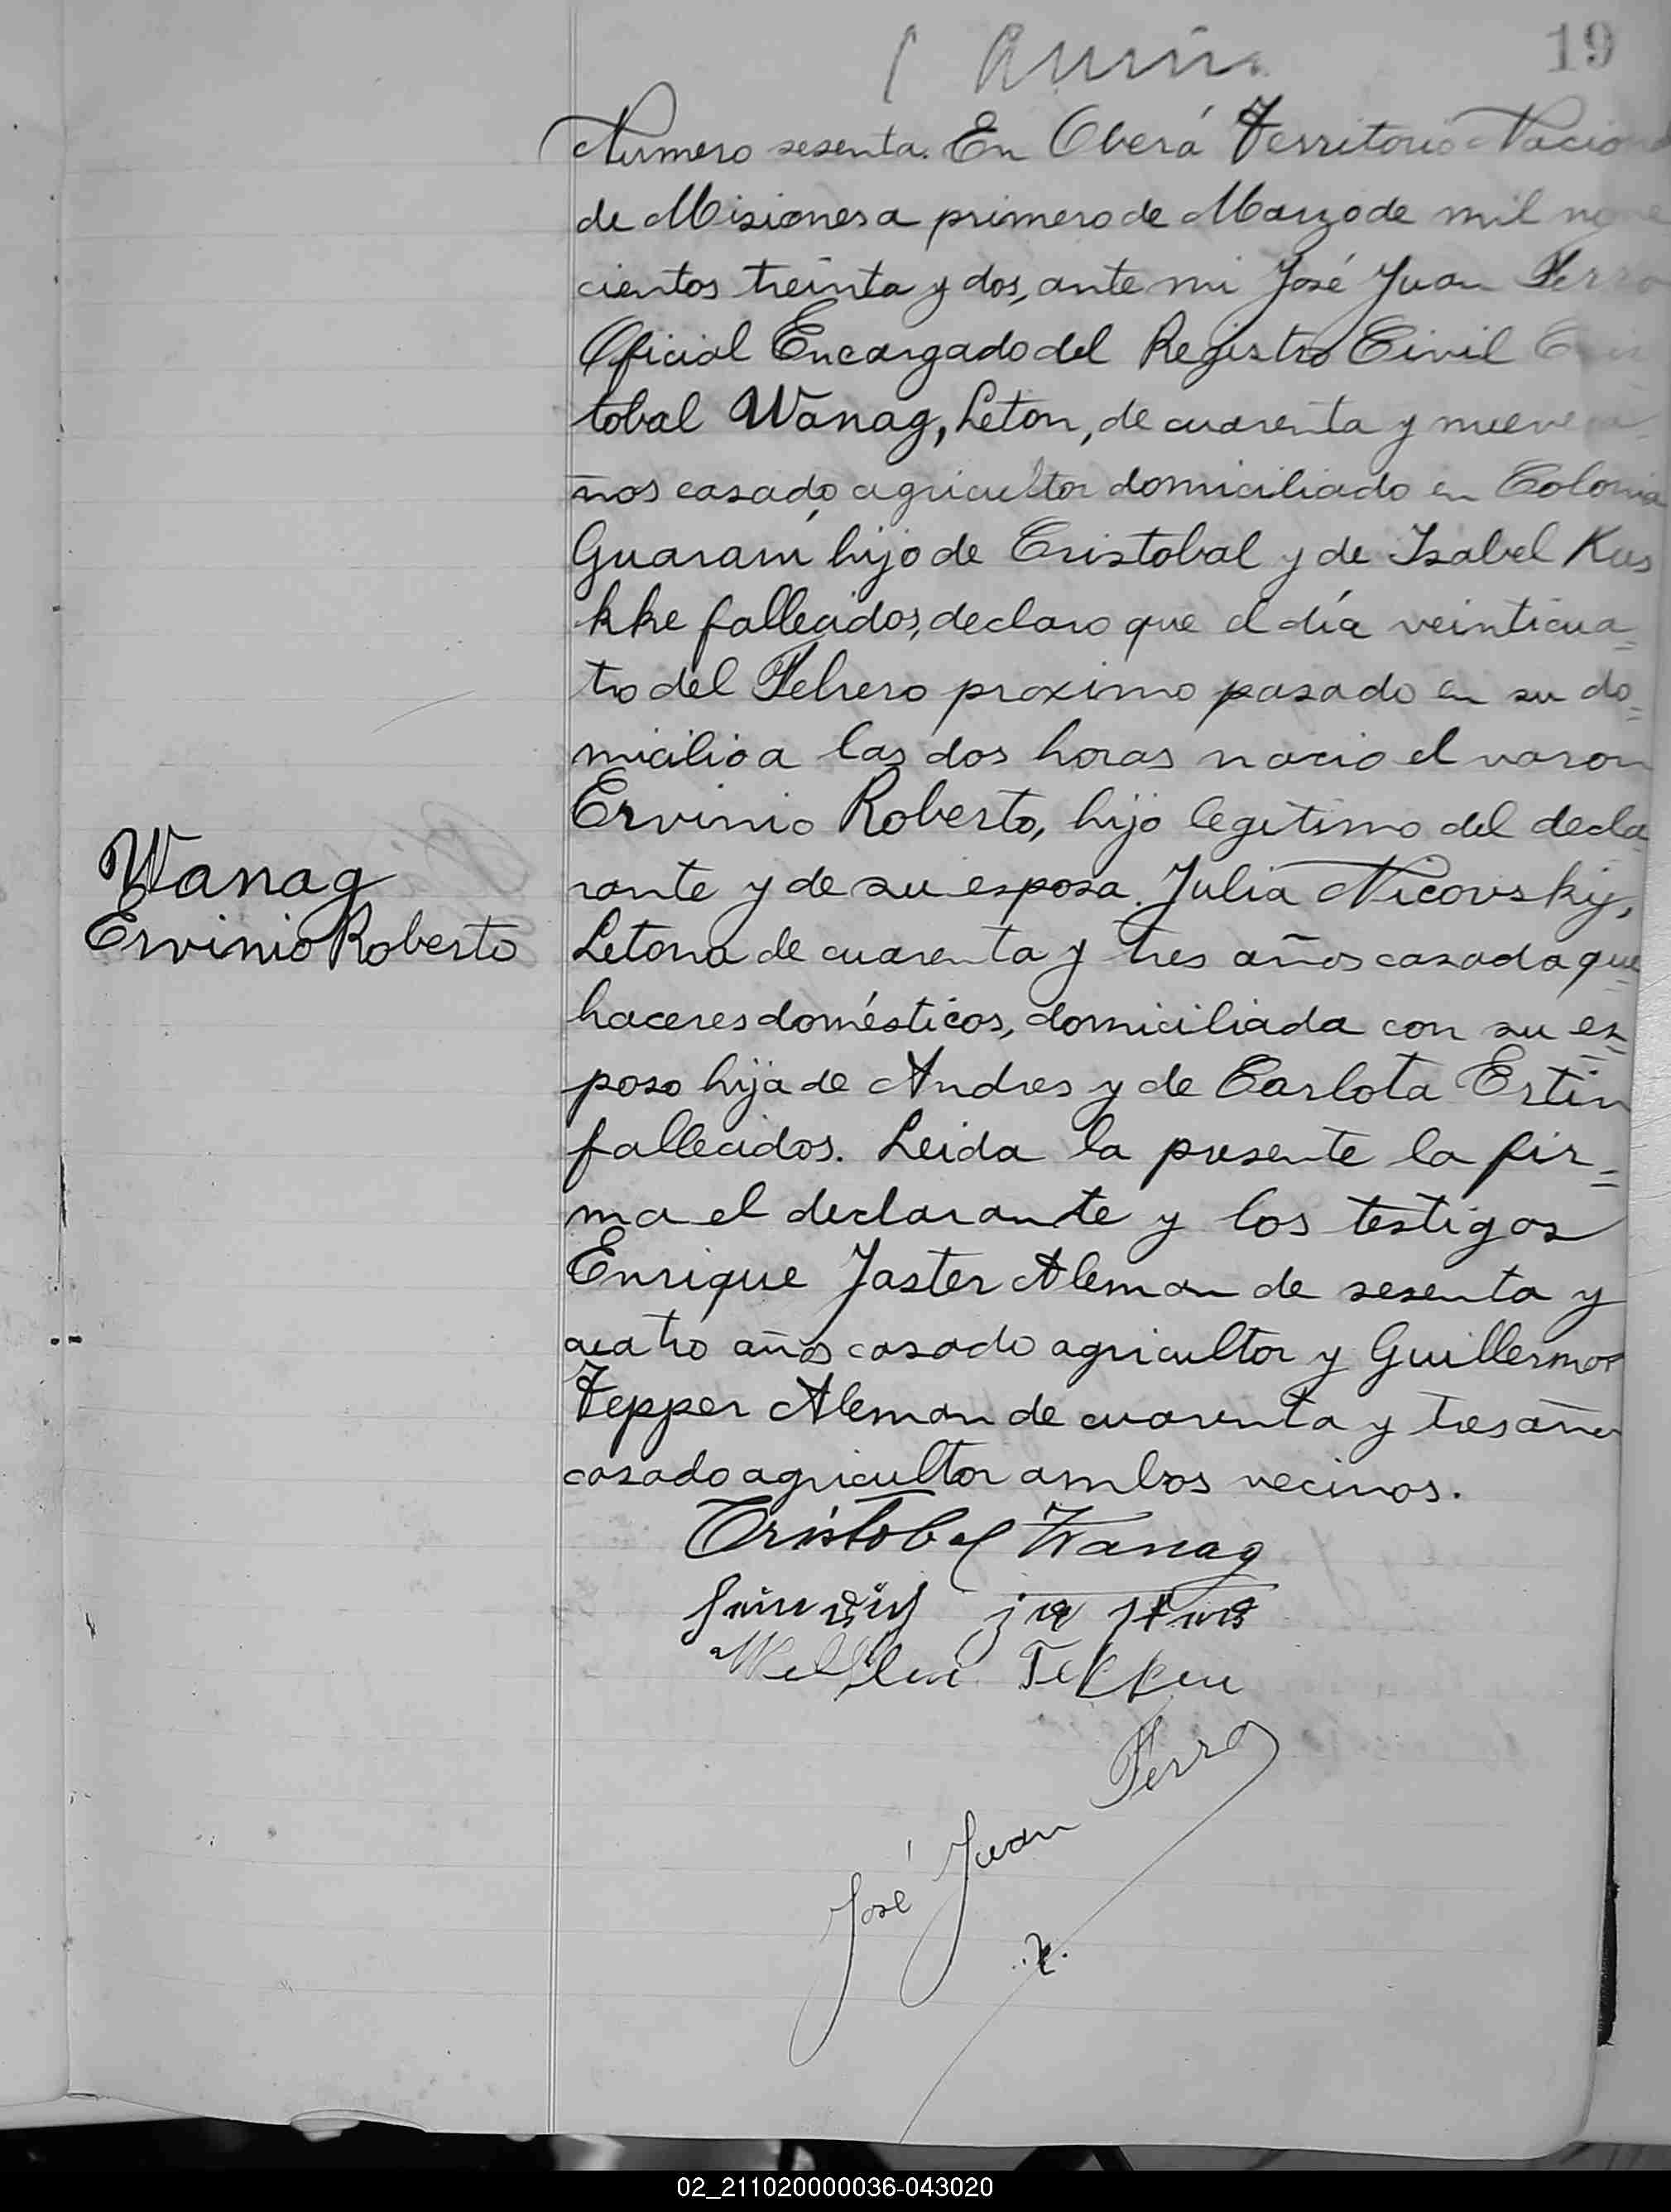 19
Numero sesenta. En Oberá Territorio Nacional
de Misiones a primero de Marzo de mil nove
cientos treinta y dos, ante mi José Juan Ferro
Oficial Encargado del Registro Civil Cris
tobal Wanag, Leton, de cuarenta y nueve a
ños casado agricultor domiciliado en Colonia
Guaraní hijo de Cristobal y de Isabel Kus
kke fallecidos, declaro que el día veinticua=
tro del Febrero proximo pasado en su do=
micilio a las dos horas nacio el varon
Ervinio Roberto, hijo legitimo del decla
Wanag
rante y de su esposa Julia Nicovsky,
Ervinio Roberto
Letona de cuarenta y tres años casada que
haceres domésticos, domiciliada con su es=
poso hija de Andres y de Carlota Ertin
fallecidos. Leida la presente la fir=
ma el declarante y los testigos
Enrique Jaster Aleman de sesenta y
cuatro años casado agricultor y Guillermo
Tepper Aleman de cuarenta y tres años
casado agricultor ambos vecinos.
Cristobal Wanag
Tepper
José Juan Ferro
02_211020000036-043020